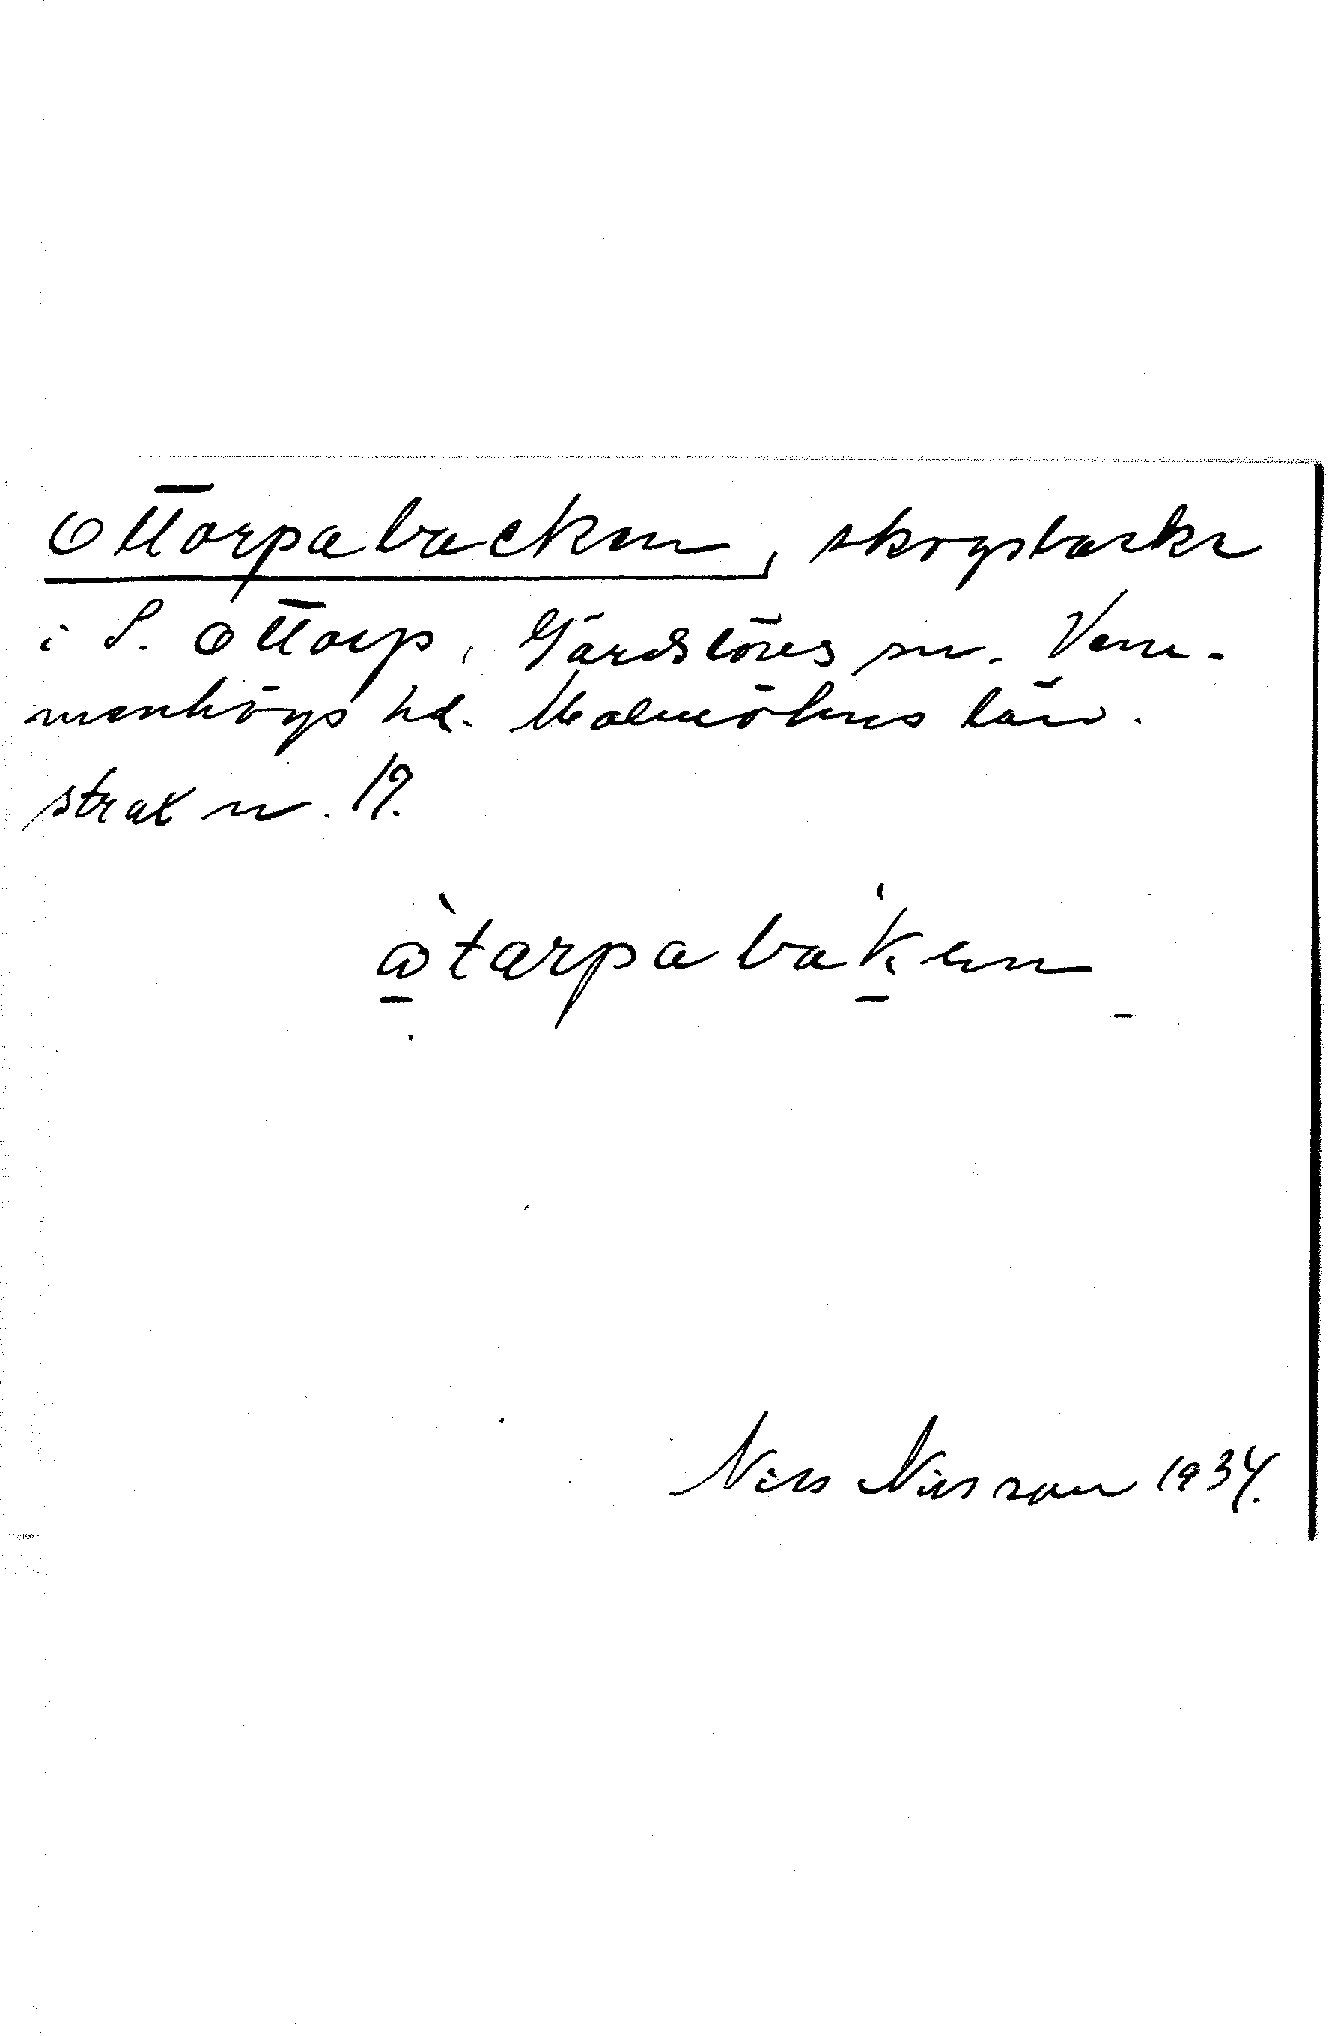 Ottarpabacken, skogsbacke
i S. Ottarp, Gärdslövs sn. Vem-
menhögs hd. Malmöhus län.
strax n. 19.
åtarpabakenn
Nils Nilsson 1934.